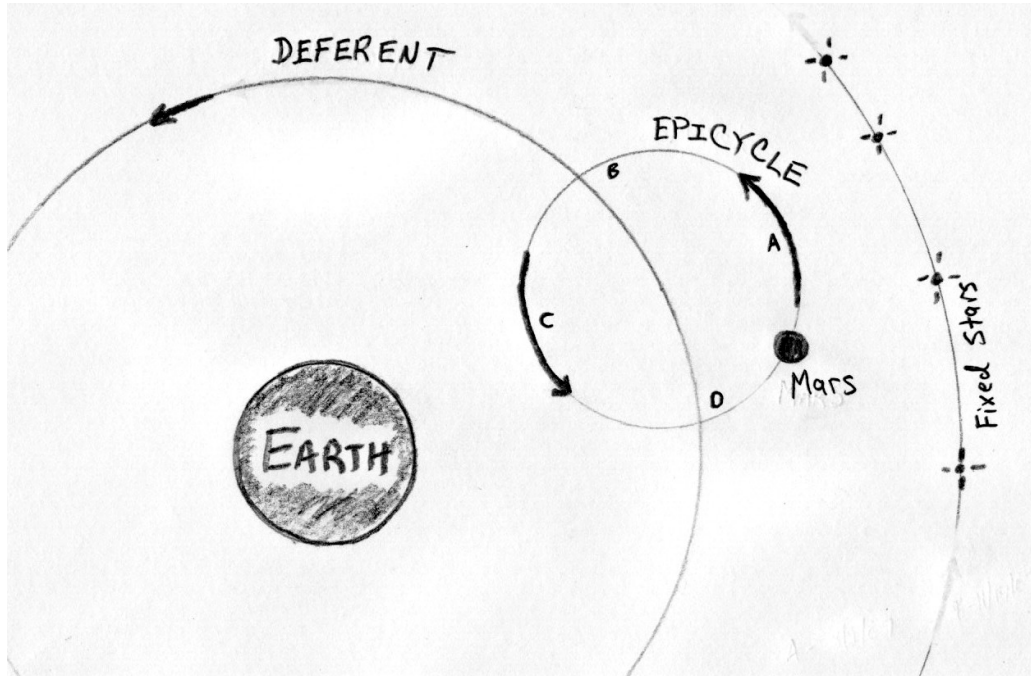 DEFERENT
EPICYCLE
B
A
C
D
Mars
EARTH
Fixed Stars